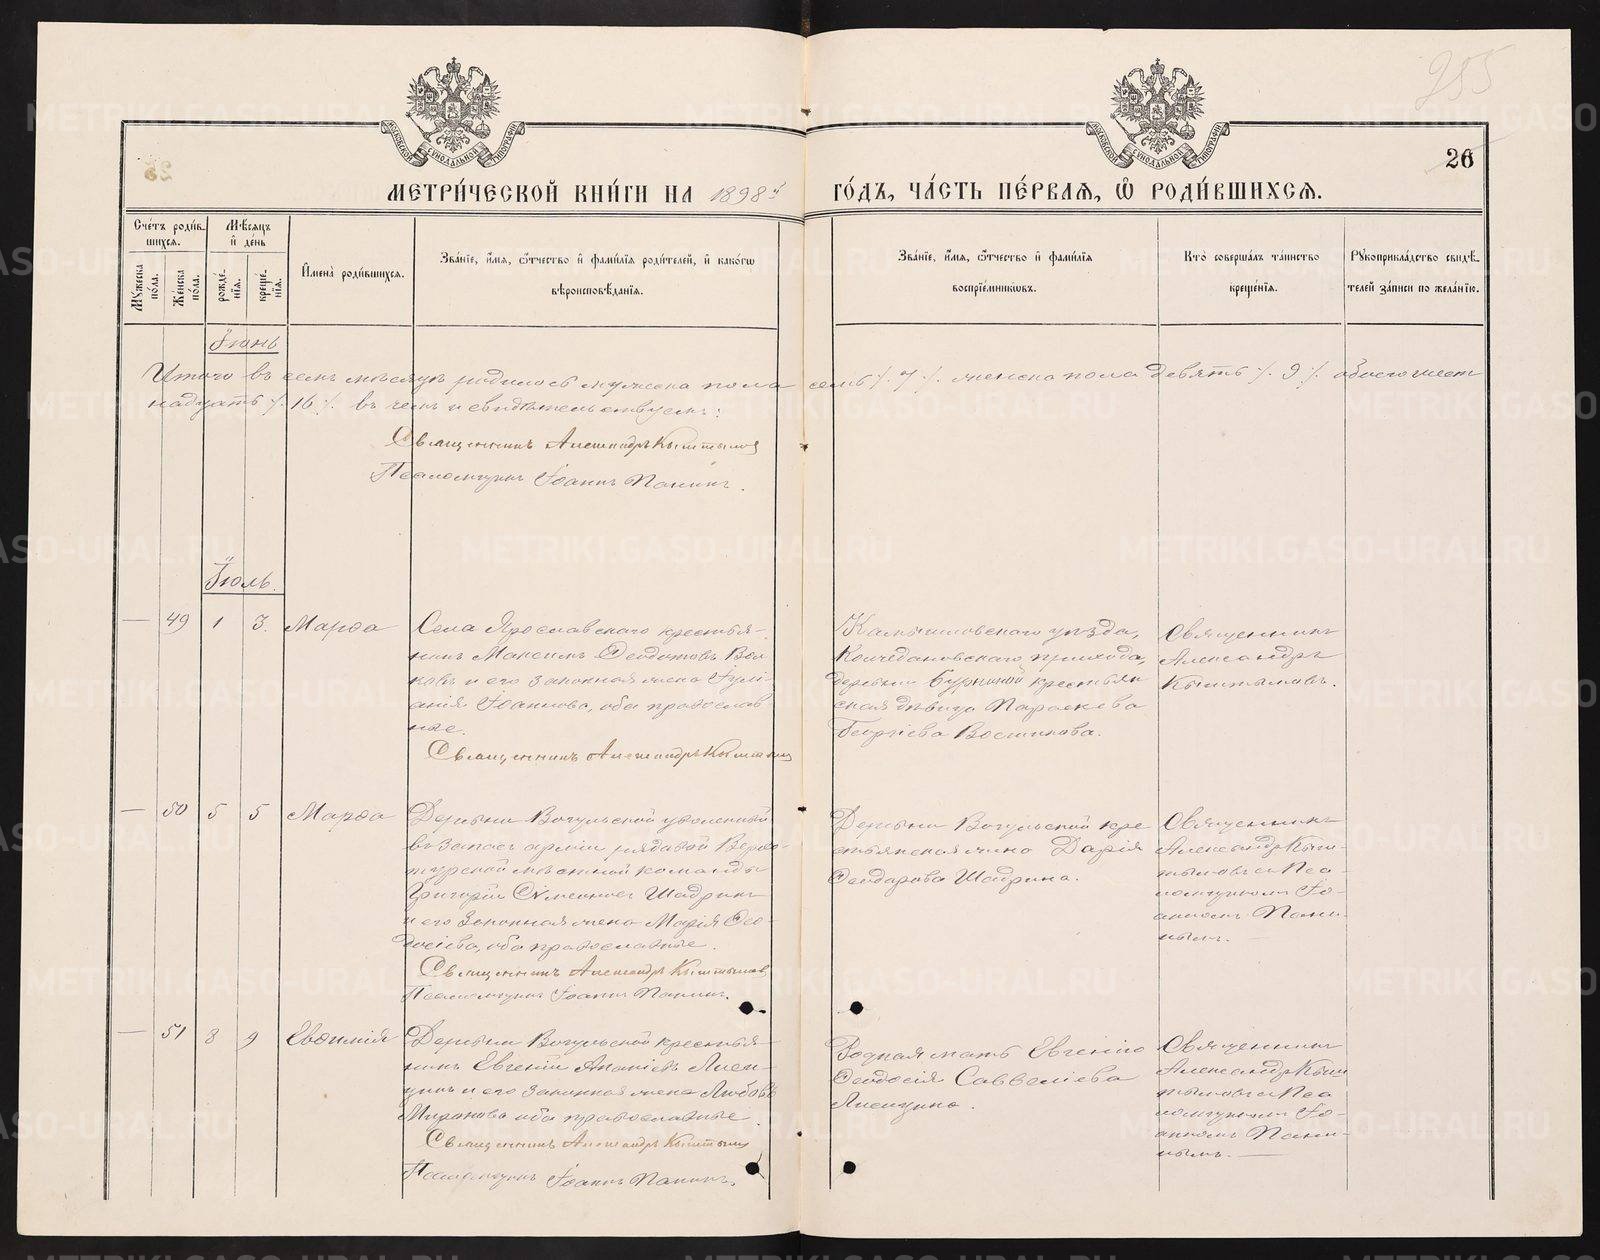 255
26
МЕТРИ́ЧЕСКОЙ КНИ́ГИ НА 1898й ГО́ДЪ, ЧА́СТЬ ПЕ́РВАѦ, Ѡ҆ РОДИ́ВШИХСѦ.
Сче́тъ роди́в-
шихсѧ.
Мꙋ́жеска по́ла.
Же́нска по́ла.
Мѣ́сѧцъ
и҆ де́нь
рожде́-
нїѧ.
креще́-
нїѧ.
И҆мена̀ роди́вшихсѧ.
Зва́нїе, и҆́мѧ, ѻ҆́тчество и҆ фами́лїѧ роди́телей, и҆ како́гѡ
вѣроисповѣ́данїѧ.
Зва́нїе, и҆́мѧ, ѻ҆́тчество и҆ фами́лїѧ
воспрїе́мникѡвъ.
Кто̀ соверша́лъ та́инство
креще́нїѧ.
Рꙋкоприкла́дство свидѣ́-
телей за́писи по жела́нїю.
Іюнь
Итого въ семъ мѣсяцѣ родилось мужеска пола семь ./. 7 ./. женска пола девять ./. 9 ./. обоего шест
надцать ./. 16 ./. въ чемъ и свидѣтельствуемъ:
Священникъ Александръ Кыштымов
Псаломщикъ Іоаннъ Панинъ.
Іюль.
— 49 1 3. Марѳа
Села Ярославскаго крестья-
нинъ Максимъ Ѳеодотовъ Вол
ковъ и его законная жена Іулі-
анія Іоаннова, оба православ
ные.
Священникъ Александръ Кыштым
Камышловскаго уѣзда,
Колчедановскаго прихода,
деревни Бурниной крестьян
ская дѣвица Параскева
Георгіева Вос
Священникъ
Александръ
Кыштымовъ.
— 50 5 5 Марѳа
Деревни Вогульской уволенный
въ запасъ арміи рядовой Верхо-
турской мѣстной команды
Григорій Шадринъ
и его законная жена Марія Ѳео-
досіева, оба православные.
Священникъ Александръ Кыштымов
Псаломщикъ Іоаннъ Панинъ.
Деревни Вогульской кре
стьянская жена Дарія
Ѳеодорова Шадрина.
Священникъ
Александръ Кыш-
тымовъ съ Пса-
ломщикомъ Іо-
анномъ Пани-
нымъ. —
— 51 8 9 Евѳимія
Деревни Вогульской крестья-
нинъ Евгеній Ананіевъ Лиси-
цинъ и его законная жена Любовь
Миронова оба православные.
Священникъ Александръ Кыштым
Псаломщикъ Іоаннъ Панинъ.
Родная мать Евгенія
Ѳеодосія Савваліева
Лисицина.
Священникъ
Александръ Кыш
тымовъ съ Пса
ломщикомъ Іо-
анномъ Пани-
нымъ. —
METRIKI.GASO-URAL.RU